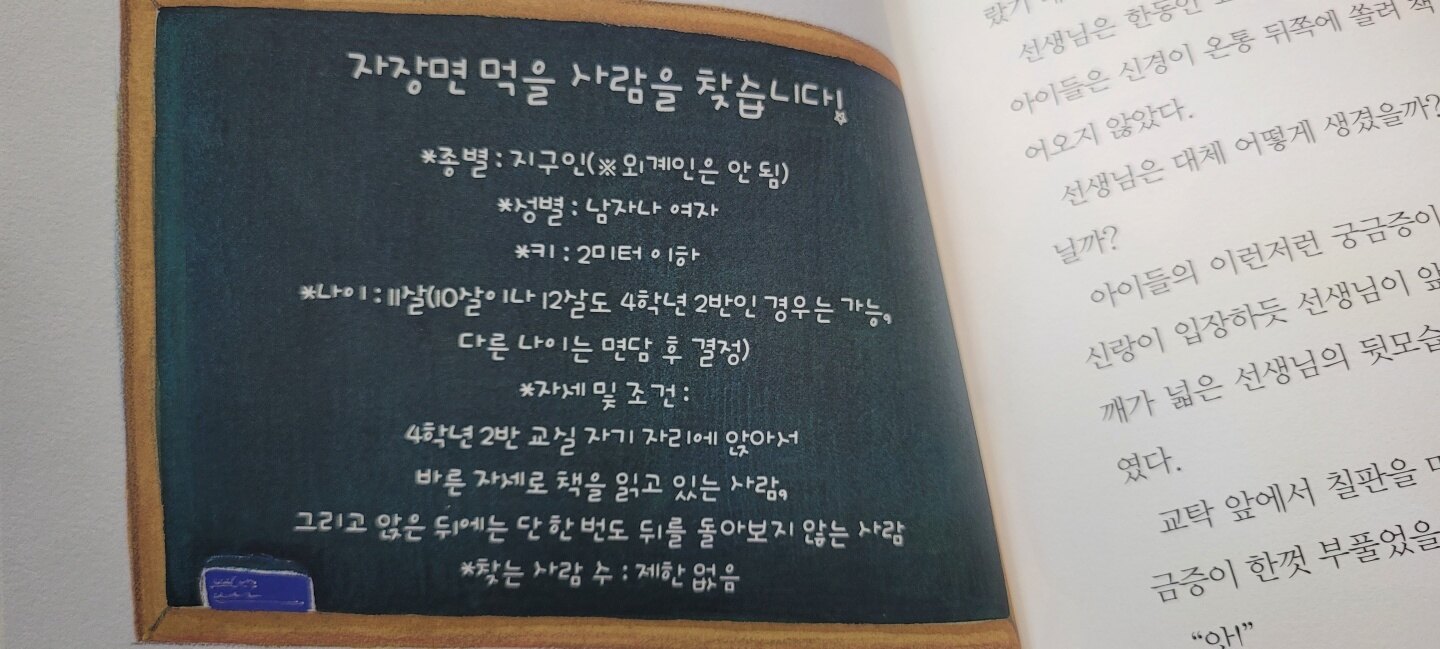 자장면 먹을 사람을 찾습니다!
*종별 : 지구인(※외계인은 안 됨)
*성별 : 남자나 여자
*키 : 2미터 이하
*나이 : 11살(10살이나 12살도 4학년 2반인 경우는 가능,
다른 나이는 면담 후 결정)
*자세 및 조건 :
4학년 2반 교실 자기 자리에 앉아서
바른 자세로 책을 읽고 있는 사람,
그리고 앉은 뒤에는 단 한 번도 뒤를 돌아보지 않는 사람
*찾는 사람 수 : 제한 없음
선생님은 한동안
아이들은 신경이 온통 뒤쪽에 쏠려 책
어오지 않았다.
선생님은 대체 어떻게 생겼을까?
닐까?
아이들의 이런저런 궁금증이
신랑이 입장하듯 선생님이 앞
깨가 넓은 선생님의 뒷모습
였다.
교탁 앞에서 칠판을
금증이 한껏 부풀었을
“앗!”